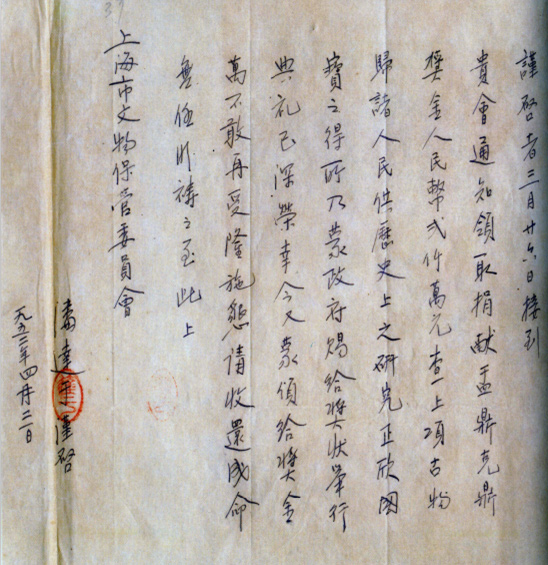 謹啓者三月廿六日接到
貴會通知領取捐献盂鼎克鼎
奬金人民幣弍仟萬元查上項古物
歸諸人民供歷史上之研究正欣國
寶之得所乃蒙政府賜給奬狀举行
典礼已深榮幸今又蒙頒給奬金
萬不敢再受隆施懇請收還成命
無任祈禱之至此上
上海市文物保管委員會
潘達于謹啓
一九五二年四月二日